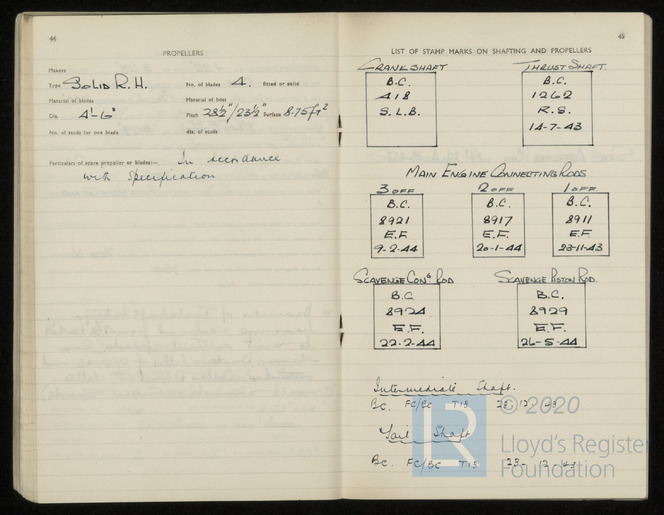 44
PROPELLERS
Makers
Type SOLID R.H. No. of blades 4. fitted or solid
Material of blades Material of boss
Dia. 4'-6" Pitch 28½"/23½" Surface 8.75 ft²
No. of studs for one blade dia. of studs
Particulars of spare propeller or blades:— In accordance
with Specification
45
LIST OF STAMP MARKS ON SHAFTING AND PROPELLERS
CRANKSHAFT THRUST SHAFT.
B.C. B.C.
418 1262
S.L.B. R.S.
14-7-43
MAIN ENGINE CONNECTING RODS
3 OFF 2 OFF 1 OFF
B.C. B.C. B.C.
8921 8917 8911
E.F. E.F. E.F.
9-2-44 20-1-44 23-11-43
SCAVENGE CONG ROD SCAVENGE PISTON ROD.
B.C. B.C.
8924 8929
E.F. E.F.
22-2-44 26-5-44
Intermediate Shaft.
BC. FC/BC T15 23 12 43
Tail Shaft
BC. FC/BC T15 23-12-43
LR © 2020
Lloyd's Register
Foundation